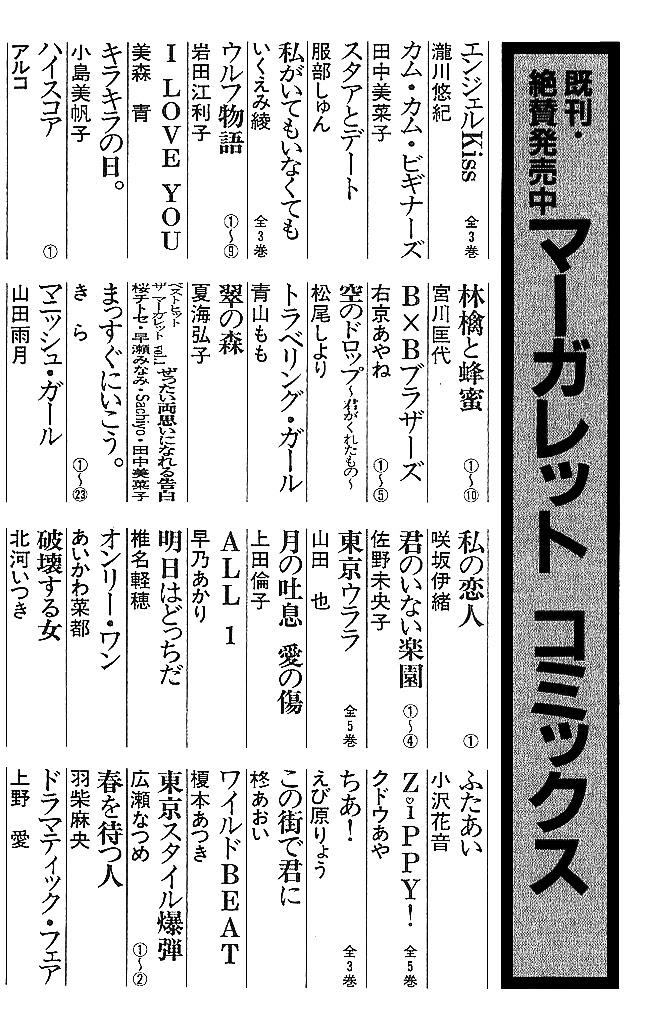 既刊・
絶賛発売中
マーガレット コミックス
エンジェルKiss 全3巻
瀧川悠紀
カム・カム・ビギナーズ
田中美菜子
スタアとデート
服部しゅん
私がいてもいなくても 全3巻
いくえみ綾
ウルフ物語 ①〜⑤
岩田江利子
I LOVE YOU
美森 青
キラキラの日。
小島美帆子
ハイスコア ①
アルコ
林檎と蜂蜜 ①〜⑩
宮川匡代
B×Bブラザーズ ①〜⑤
右京あやね
空のドロップ〜君がくれたもの〜
松尾しより
トラベリング・ガール
青山もも
翠の森
夏海弘子
ベストヒット
ザ マーガレット vol.1 ぜったい両思いになれる告白
桜チトセ・早瀬みなみ・Sachiyo・田中美菜子
まっすぐにいこう。 ①〜㉓
きら
マニッシュ・ガール
山田雨月
私の恋人 ①
咲坂伊緒
君のいない楽園 ①〜④
佐野未央子
東京ウララ 全5巻
山田 也
月の吐息 愛の傷
上田倫子
ALL 1
早乃あかり
明日はどっちだ
椎名軽穂
オンリー・ワン
あいかわ菜都
破壊する女
北河いつき
ふたあい
小沢花音
ZiPPY! 全5巻
クドウあや
ちあ! 全3巻
えび原りょう
この街で君に
柊あおい
ワイルドBEAT
榎本あつき
東京スタイル爆弾 ①〜②
広瀬なつめ
春を待つ人
羽柴麻央
ドラマティック・フェア
上野 愛